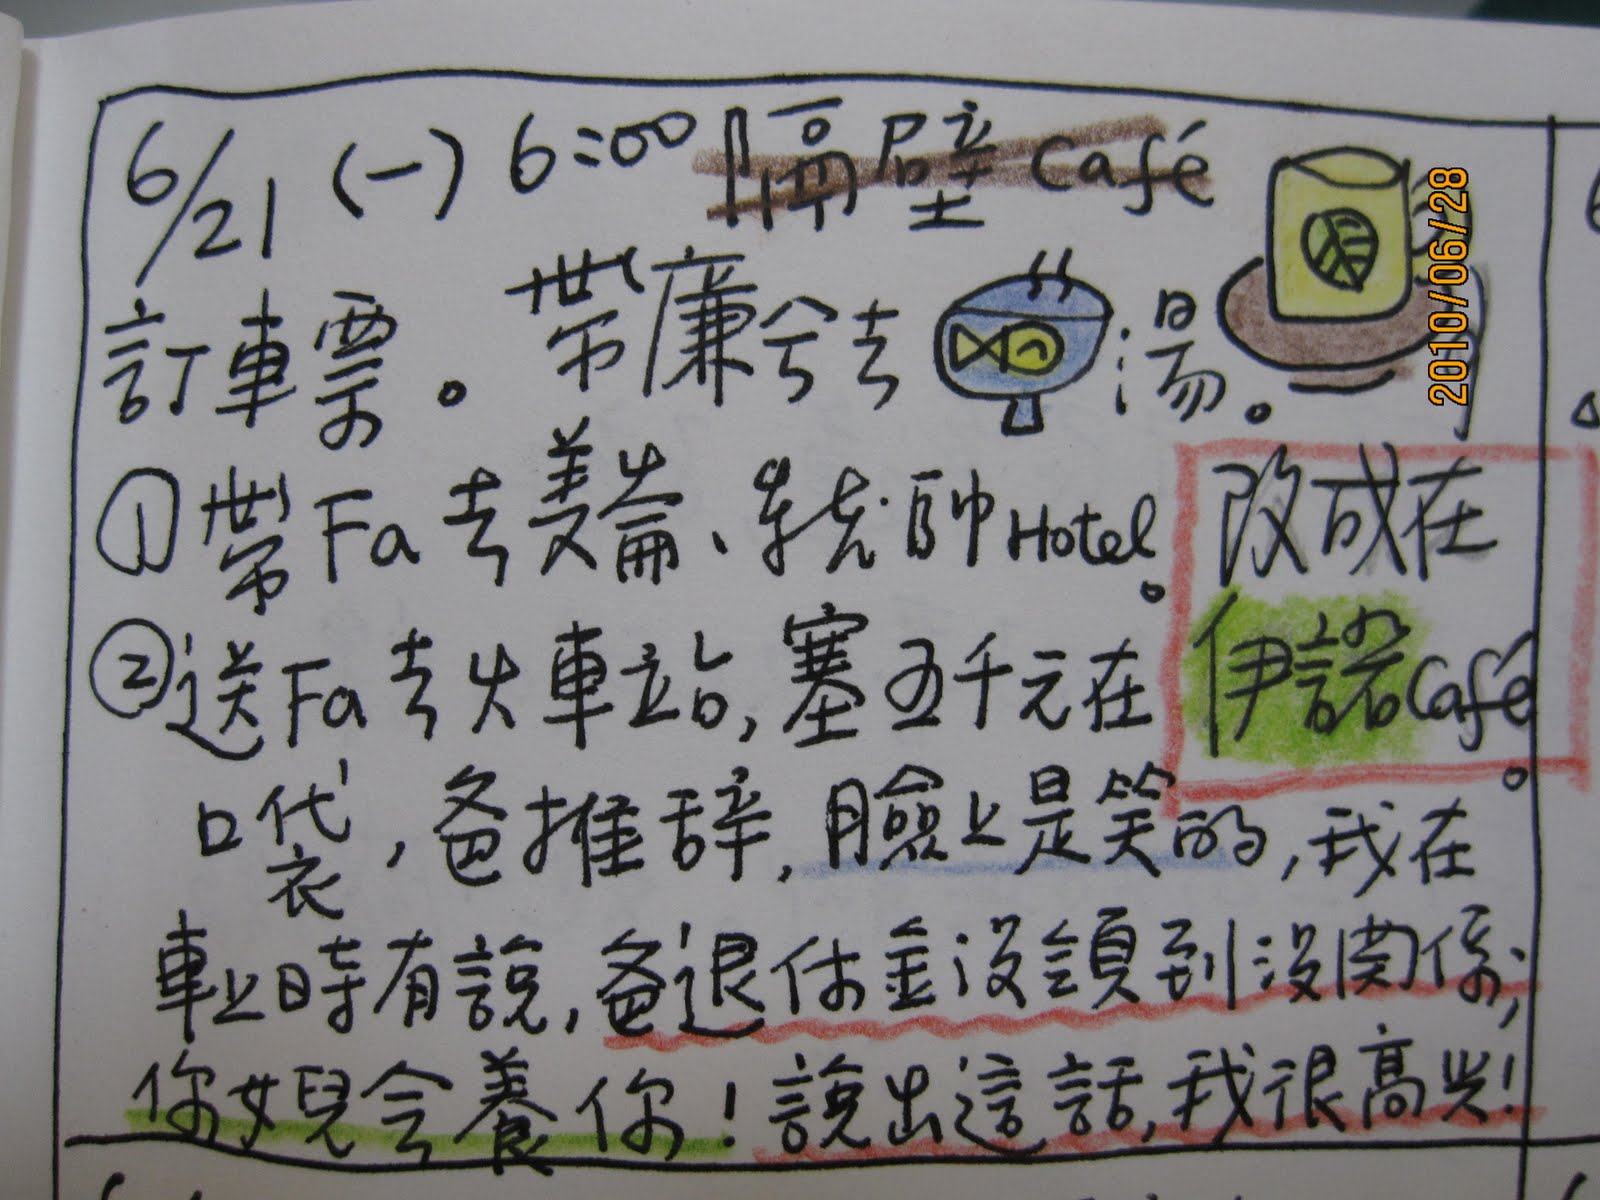 6/21 (一) 6:00 隔壁 Café
訂車票。 帶廉兮去 湯。
① 帶Fa去美崙、統帥Hotel。
改成在
伊諾Café。
② 送Fa去火車站,塞五千元在
口袋,爸推辞,臉上是笑的,我在
車上時有說,爸退休金沒領到沒関係,
你女兒会養你!說出這話,我很高兴!
2010/06/28